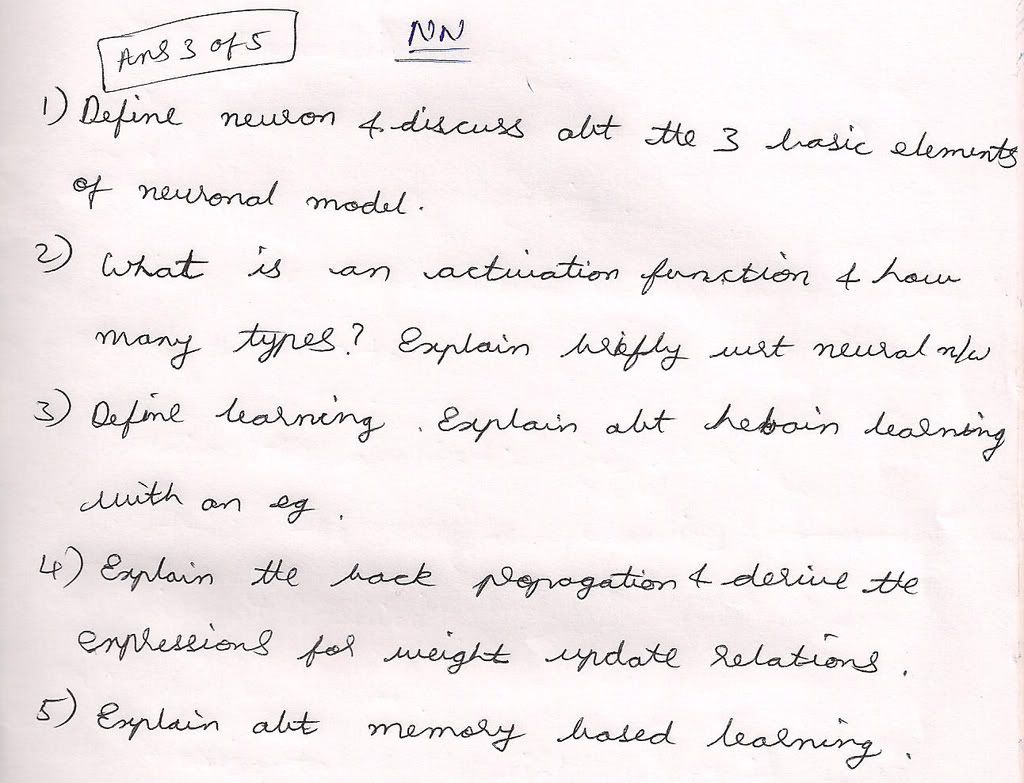 NN
Ans 3 of 5
1) Define neuron & discuss abt the 3 basic elements
of neuronal model.
2) What is an activation function & how
many types? Explain briefly wrt neural n/w
3) Define learning. Explain abt hebbain learning
with an eg.
4) Explain the back propagation & derive the
expressions for weight update relations.
5) Explain abt memory based learning.